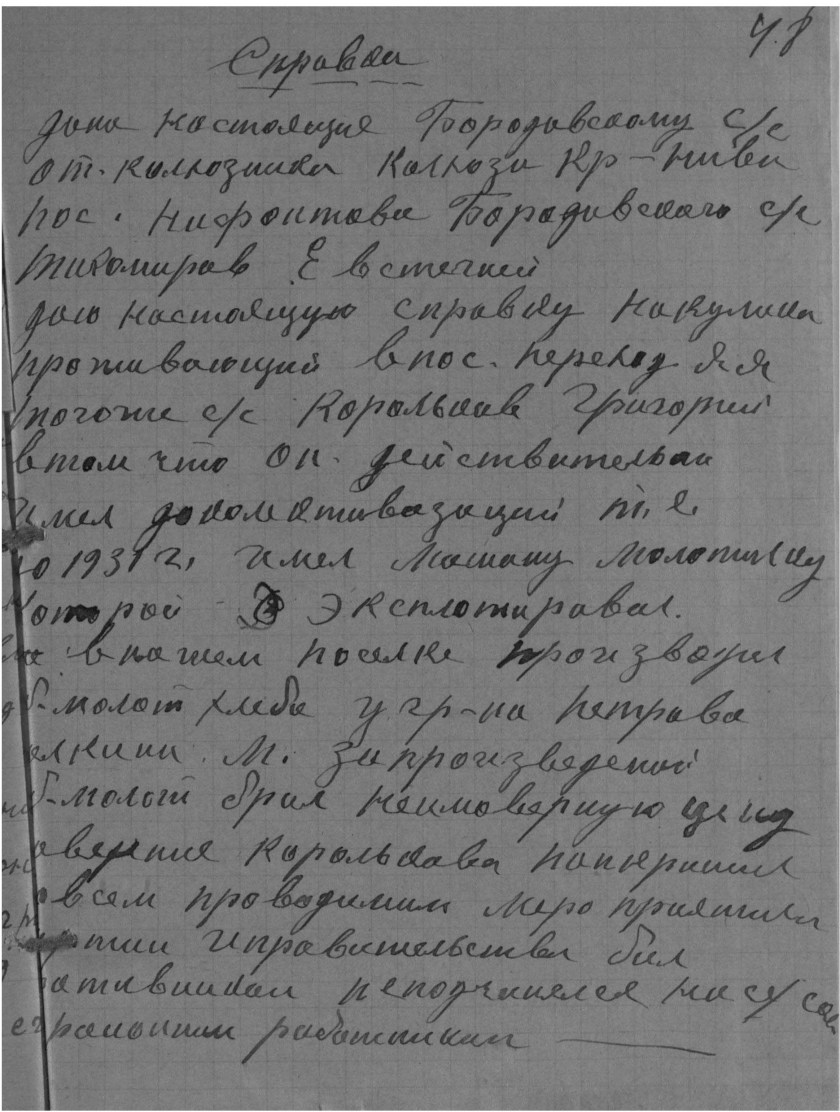 48
Справка
дана настоящие Бородовскому с/с
от. колхозника Колхоза Кр-Нива
пос. Нифонтова Бородовского с/с
Тихомиров Е
даю настоящую справку на кулака
проживающий впос. переход
тогоже с/с Корольков Григорий
втом что он действительно
имел доколективазаций т.е.
до 1931 г. имел машану молотилку
Которой эксплотировал.
внашем поселке производил
об-молот хлеба у гр-на Петрова
М. запроизведеной
об-молот брал неимоверную цену
Королькова
всем проводимым меро приятиям
партии иправительства бил
противником неподчинялся
районным работникам